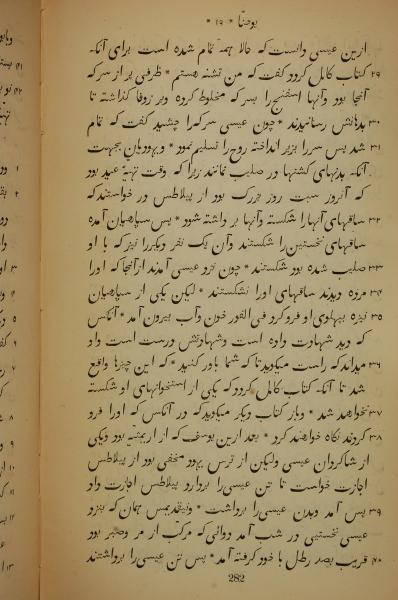 یوحنّا * ۱۹ *
ازین عیسی دانست که حالا همه تمام شده است برای آنکه
۲۹ کتاب کامل گردد گفت که من تشنه هستم * ظرفی پر از سرکه
آنجا بود و آنها اسفنجی را بسرکه مخلوط کرده و بر زوفا گذاشته تا
۳۰ بدهانش رسانیدند * چون عیسی سرکه را چشید گفت که تمام
۳۱ شد پس سر را بزیر انداخته روح را تسلیم نمود * و یهودیان بجهت
آنکه بدنهای کشتها در صلیب نمانند زیرا که وقت تهیّهٔ عید بود
که آنروز سبت روز بزرگ بود از پیلاطس در خواستند که
۳۲ ساقهای آنها را شکسته و آنها بر داشته شود * پس سپاهیان آمده
ساقهای نخستین را شکستند و آن یک نفر دیگر را نیز که با او
۳۳ صلیب شده بود شکستند * چون نزد عیسی آمدند از آنجا که اورا
۳۴ مرده دیدند ساقهای اورا نشکستند * لیکن یکی از سپاهیان
۳۵ نیزه بپهلوی او فرو کرد فی الفور خون و آب بیرون آمد * آنکس
که دید شهادت داده است و شهادتش درست است و او
۳۶ میداند که راست میگوید تا که شما باور کنید * که این چیزها واقع
شد تا آنکه کتاب کامل گردد که یکی از استخوانهای او شکسته
۳۷ نخواهد شد * و باز کتاب دیگر میگوید که در آنکس که اورا فرو
۳۸ کردند نگاه خواهند کرد * بعد ازین یوسف که از اریمتیه بود و یکی
از شاگردان عیسی و لیکن از ترس یهود مخفی بود از پیلاطس
اجازت خواست تا تن عیسی را بردارد پیلاطس اجازت داد
۳۹ پس آمد و بدن عیسی را برداشت * و نیقدیمس همان که بنزد
عیسی نخستین در شب آمد دوائی که مرکّب از مر و صبر بود
۴۰ قریب بصد رطل با خود گرفته آمد * پس تن عیسی را برداشتند
282